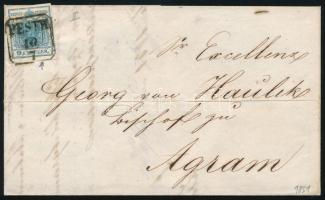 PESTH
Sr Excellenz
Georg von Haulik
Bischof zu
Agram
1851